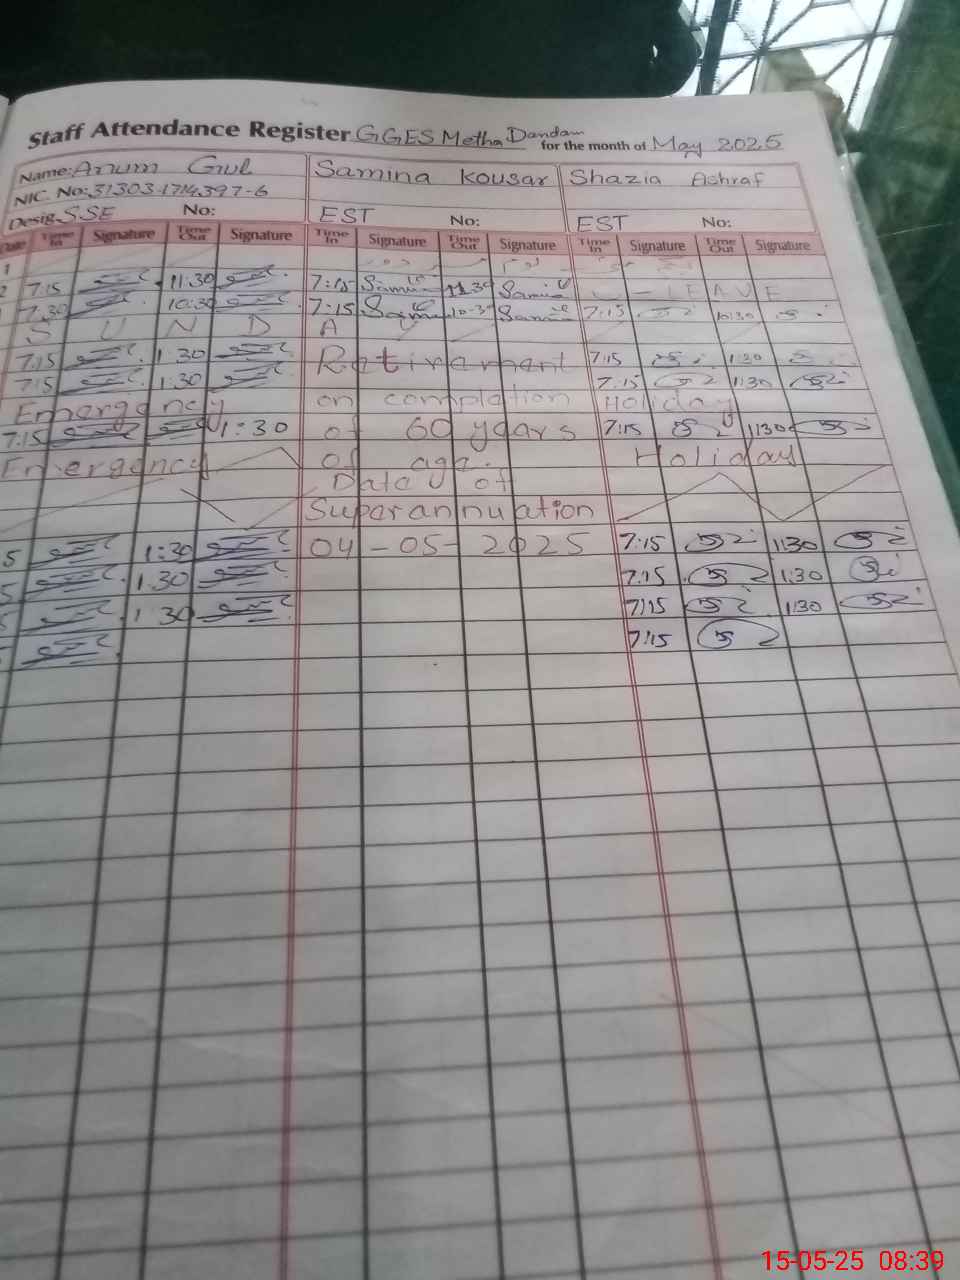 Staff Attendance Register GGES Metha Dandam for the month of May 2025
Name: Anum Gul Samina Kousar Shazia Ashraf
NIC. No: 31303-1714397-6
Desig. SSE No: EST No: EST No:
Date Time In Signature Time Out Signature Time In Signature Time Out Signature Time In Signature Time Out Signature
1
2 7:15 11:30 7:15 Samina 11.30 Samina LEAVE
7.30 10:30 7:15 Samina 10-30 Samina 7:15 10:30
S U N D A Y
7:15 1:30 Retirement 7:15 1:30
7:15 1:30 7:15 1:30
Emergency on completion Holiday
7:15 1:30 of 60 years 7:15 1:30
Emergency of age. Holiday
Date of
Superannuation
5 1:30 04-05-2025 7:15 1:30
5 1.30 7:15 1:30
1:30 7:15 1:30
7:15
15-05-25 08:39